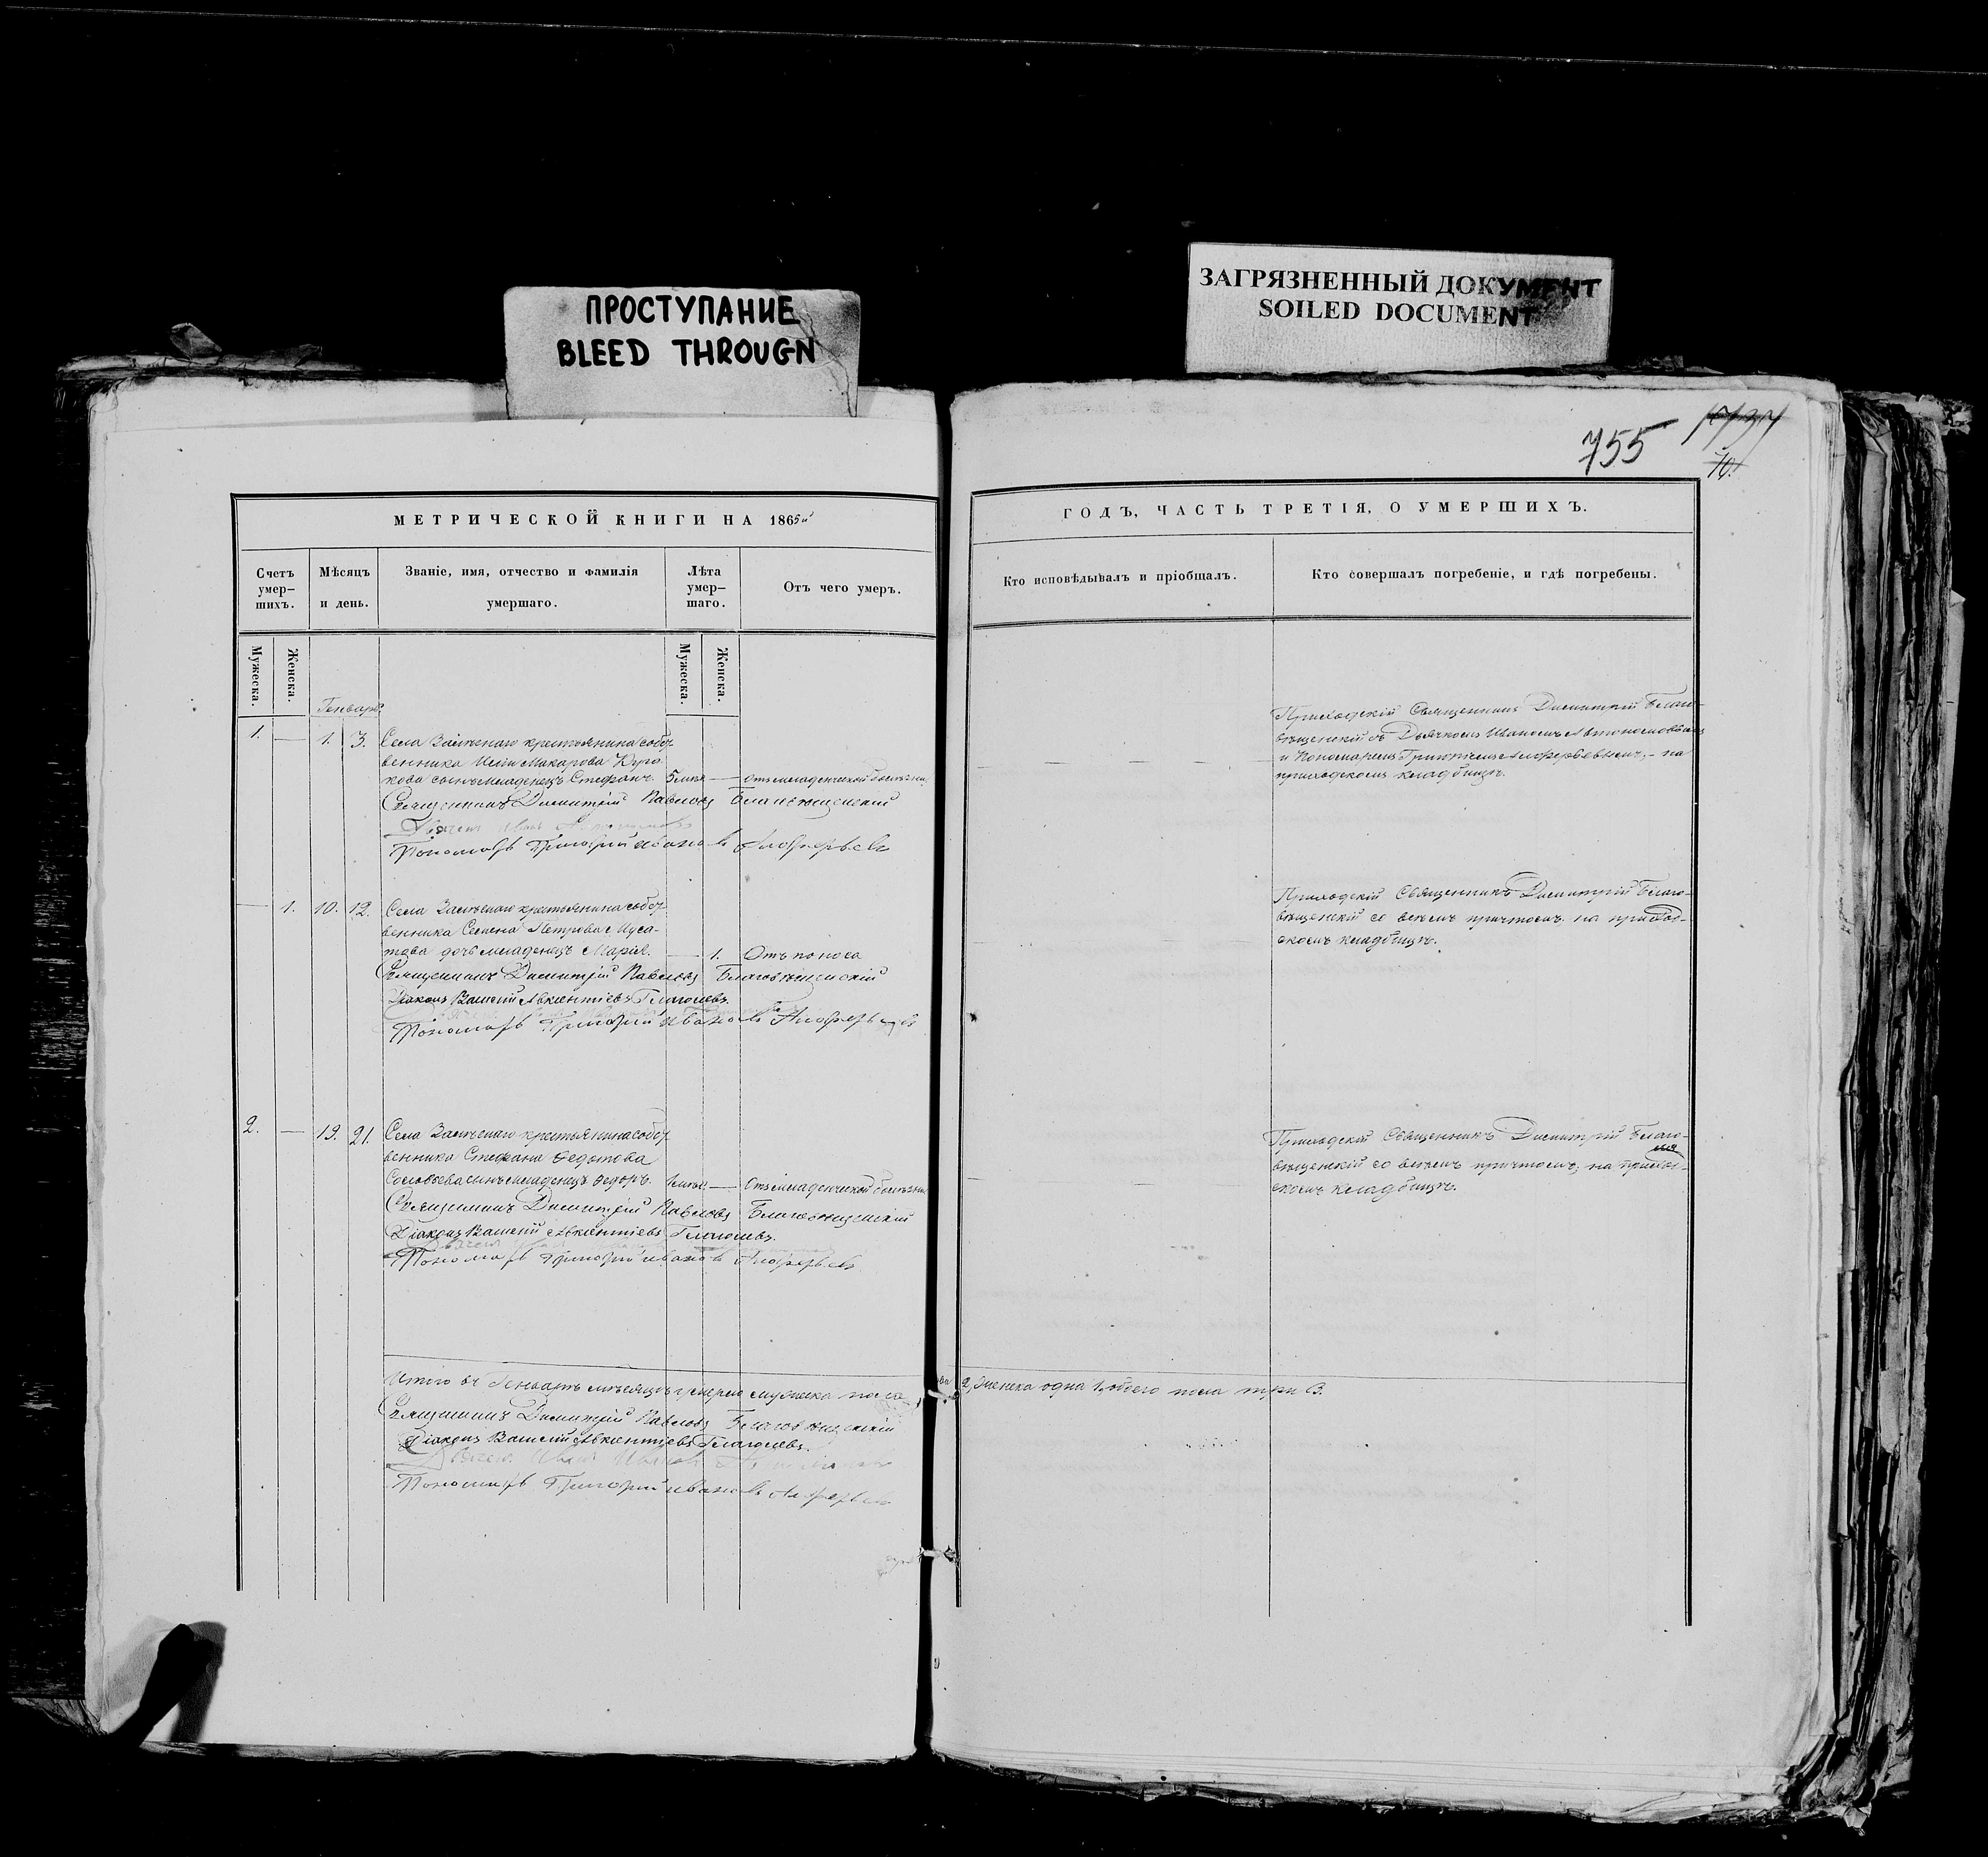 ПРОСТУПАНИЕ
BLEED THROUGN
ЗАГРЯЗНЕННЫЙ ДОКУМЕНТ
SOILED DOCUMENT
755
70.
МЕТРИЧЕСКОЙ КНИГИ НА 1865й
Счетъ умер-шихъ.
Мѣсяцъ и день.
Званіе, имя, отчество и фамилія умершаго.
Лѣта умер-шаго.
Отъ чего умеръ.
Мужеска.
Женска.
Мужеска.
Женска.
Генварь
1. — 1. 3. Села крестьянина собст
венника Макарова
кова сынъ младенецъ Стефанъ. — отъ младенческой болѣзни
Священникъ Димитрій Павловъ Благовѣщенскій
Пономарь Григорій Ивановъ Алферьевъ
— 1. 10. 12. Села крестьянина собст
венника Семена Петрова Муса-
това дочь младенецъ Марія. — 1. Отъ поноса
Священникъ Димитрій Павловъ Благовѣщенскій
Діаконъ Василій Авксентіевъ Глаголевъ.
Пономарь Григорій Ивановъ Алферьевъ
2. — 19. 21. Села крестьянина собст
венника Стефана Ѳедотова
Соловьева сынъ младенецъ Ѳедоръ. — Отъ младенческой болѣзни
Священникъ Димитрій Павловъ Благовѣщенскій
Діаконъ Василій Авксентіевъ Глаголевъ.
Пономарь Григорій Ивановъ Алферьевъ
Итого въ Генварѣ мѣсяцѣ умерло мужеска пола два 2, женска одна 1, обоего пола три 3.
Священникъ Димитрій Павловъ Благовѣщенскій
Діаконъ Василій Авксентіевъ Глаголевъ.
Пономарь Григорій Ивановъ Алферьевъ
ГОДЪ, ЧАСТЬ ТРЕТІЯ, О УМЕРШИХЪ.
Кто исповѣдывалъ и пріобщалъ.
Кто совершалъ погребеніе, и гдѣ погребены.
Приходскій Священникъ Димитрій Благо-
вѣщенскій съ Дьячкомъ Иваномъ
и Пономаремъ Григоріемъ Алферьевымъ, — на
приходскомъ кладбищѣ.
Приходскій Священникъ Димитрій Благо-
вѣщенскій со всѣмъ причтомъ, на приход-
скомъ кладбищѣ.
Приходскій Священникъ Димитрій Благо-
вѣщенскій со всѣмъ причтомъ, на приход-
скомъ кладбищѣ.